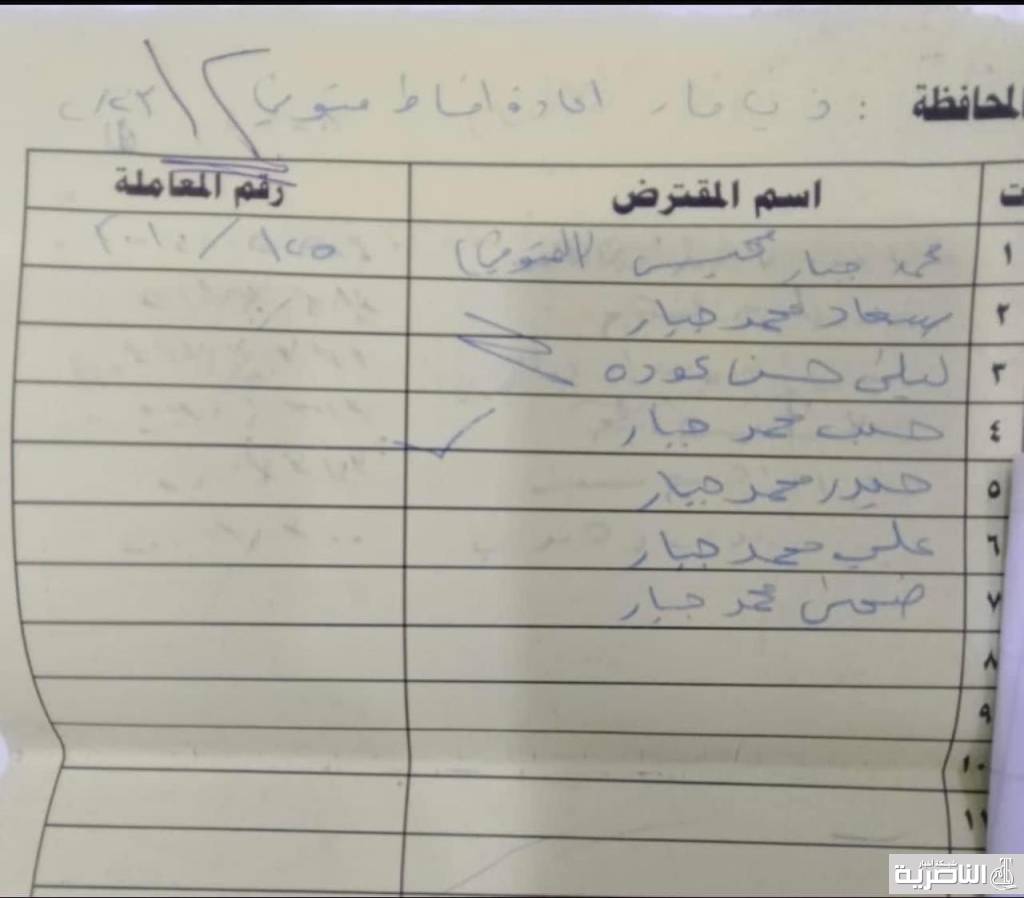 المحافظة : ذي قار اعادة اقساط متوفي
ت اسم المقترض رقم المعاملة
١ محمد جبار محيسن (المتوفي) ٨٧٥ / ٢٠١٠
٢ سعاد محمد جبار
٣ ليلى حسن عوده
٤ حسين محمد جبار
٥ حيدر محمد جبار
٦ علي محمد جبار
٧ ضحى محمد جبار
٨
٩
١٠
١١
شبكة أخبار
الناصرية